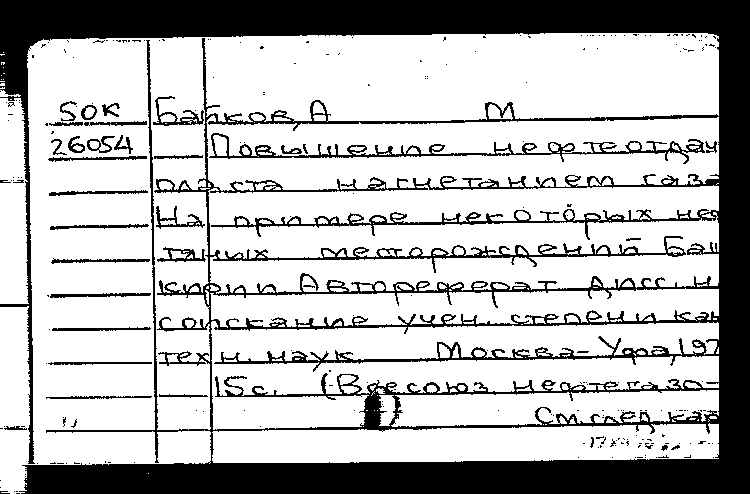 50К Байков, А М
26054 Повышение нефтеотдач
пласта нагнетанием газа
На примере некоторых неф
тяных месторождений Баш
кирии Автореферат дисс. н
соискание учен. степени кан
техн. наук. Москва-Уфа, 197
15с. (Всесоюз. нефтегазо-
)
См. след. кар